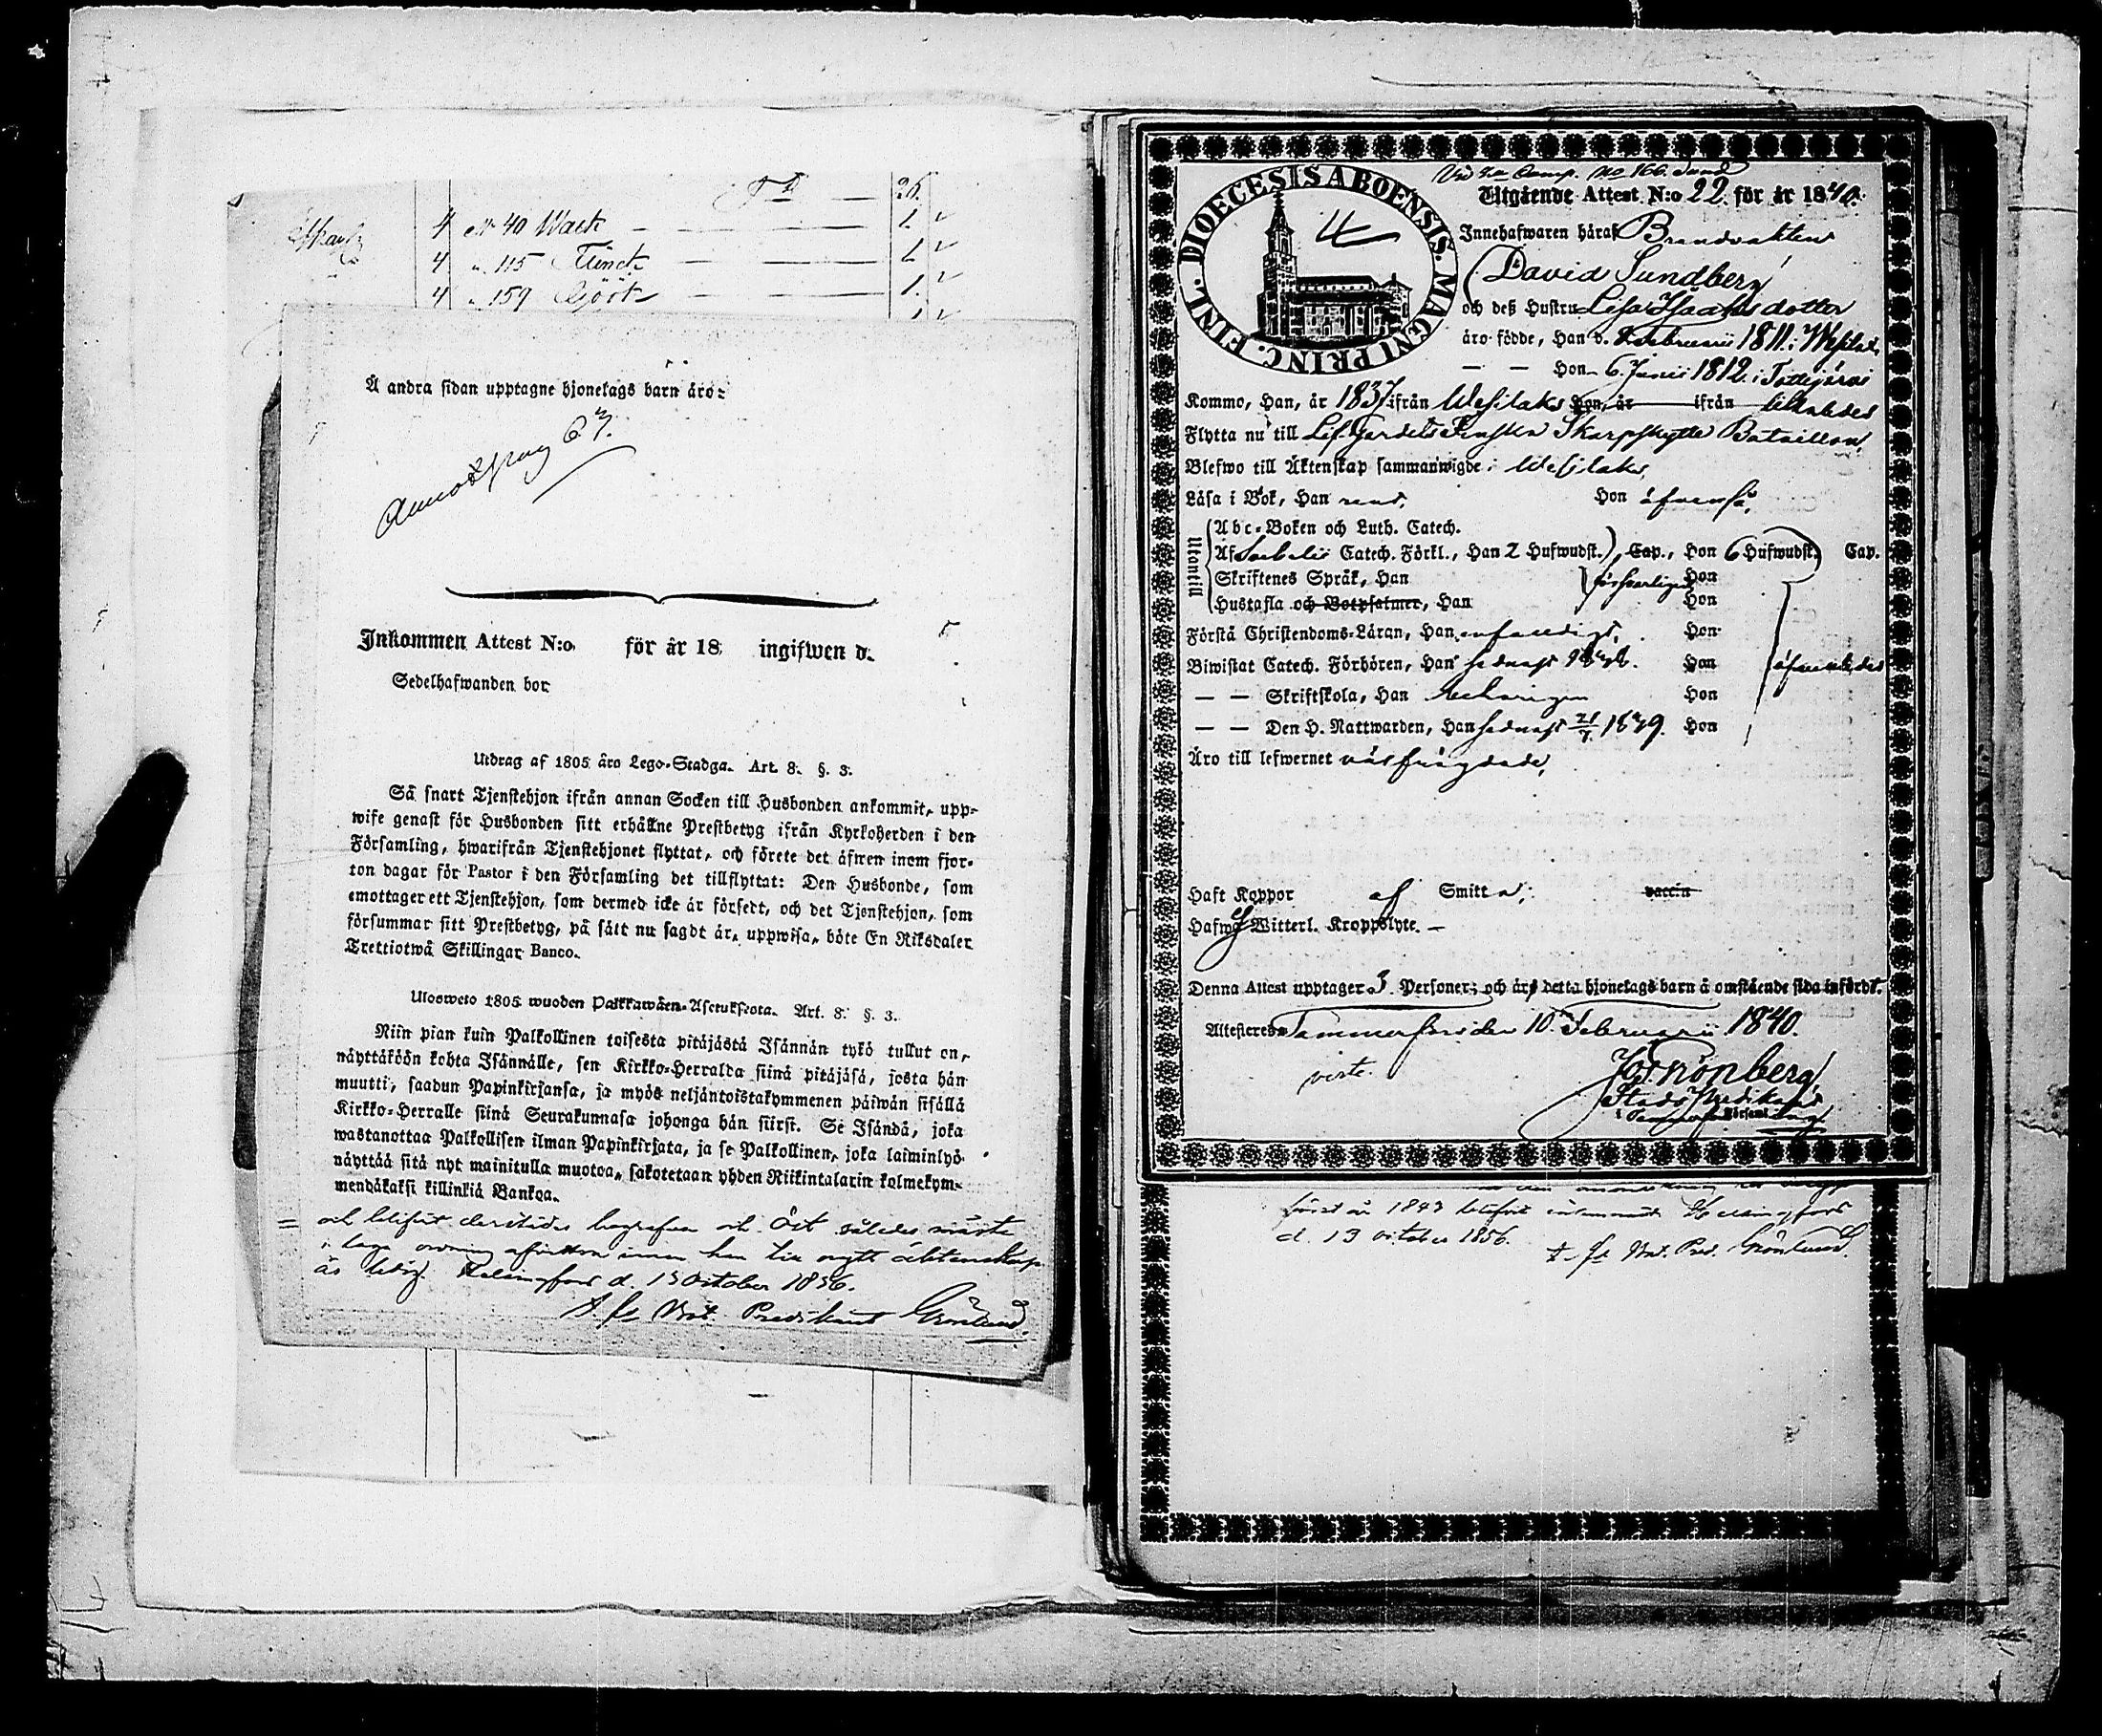 26.
4 No 40 Wack — — 1.
4 „ 115 Flinck — — 1.
4 „ 159 — — 1.
Å andra sidan upptagne hjonelags barn äro:
Inkommen Attest N:o för år 18 ingifwen d.
Sedelhafwanden bor
Utdrag af 1805 åro Lego-Stadga. Art. 8. §. 3.
Så snart Tjenstehjon ifrån annan Socken till Husbonden ankommit, upp-
wise genast för Husbonden sitt erhållne Prestbetyg ifrån Kyrkoherden i den
Församling, hwarifrån Tjenstehjonet flyttat, och förete det äfwen inom fjor-
ton dagar för Pastor i den Församling det tillflyttat: Den Husbonde, som
emottager ett Tjenstehjon, som dermed icke är försedt, och det Tjenstehjon, som
försummar sitt Prestbetyg, på sätt nu sagdt är, uppwisa, böte En Riksdaler
Trettiotwå Skillingar Banco.
Ulosweto 1805 wuoden Palkkawäen-Asetuksesta. Art. 8. §. 3.
Niin pian kuin Palkollinen toisesta pitäjästä Isännän tykö tullut on,
näyttäköön kohta Isännälle, sen Kirkko-Herralda siinä pitäjäsä, josta hän
muutti, saadun Papinkirjansa, ja myös neljäntoistakymmenen päiwän sisällä
Kirkko-Herralle siinä Seurakunnasa johonga hän siirsi. Se Isändä, joka
wastanottaa Palkollisen ilman Papinkirjata, ja se Palkollinen, joka laiminlyö
näyttää sitä nyt mainitulla muotoa, sakotetaan yhden Riikintalarin kolmekym-
mendäkaksi killinkiä Bankoa.
= och blifvit derstädes begrafven och
i laga ordning innan han till nytt äktenskap
är ledig. Helsingfors d. 13 October 1856.
Predikant Grönlund.
DIOECESIS ABOENSIS. MAGNI PRINC. FINL.
4
Comp. No 166. Sund
Utgående Attest N:o 22 för år 1840.
Innehafwaren häraf Brandvakten
David Sundberg
och deß Hustru Lisa Isaaksdotter
äro födde, Han d. Februarii 1811. i Wesilaks
— — Hon 6 Junii 1812. i Tottijärvi
Kommo, Han, år 1837 ifrån Wesilaks Hon, år ifrån likaledes
Flytta nu till Lif-Gardets Finska Skarpskytte Bataillon,
Blefwo till Äktenskap sammanwigde i Wesilaks,
Läsa i Bok, Han rent, Hon äfvenså,
Utantill
Abc-Boken och Luth. Catech.
Af Catech. Förkl., Han 2 Hufwudst. Cap., Hon 6 Hufwudst. Cap.
Skriftenes Språk, Han försvarligen Hon
Hustafla och Botpsalmer, Han Hon
Förstå Christendoms-Läran, Han enfaldigt, Hon
Biwistat Catech. Förhören, Han sednast Hon äfvenledes
— — Skriftskola, Han Hon
— — Den H. Nattwarden, Han sednast 21/7 1839. Hon
Äro till lefwernet välfrägdade,
Haft Koppor af Smitta; vaccin
Hafwa ej Witterl. Kroppslyte. —
Denna Attest upptager 3 Personer; och äro detta hjonelags barn å omstående sida införde.
Attesteres Tammerfors den 10 Februarii 1840.
verte.
Grönberg,
Stads Predikant
i Församling
först år 1843 blifvit Helsingfors
d. 13 October 1856.
Pred. Grönlund.